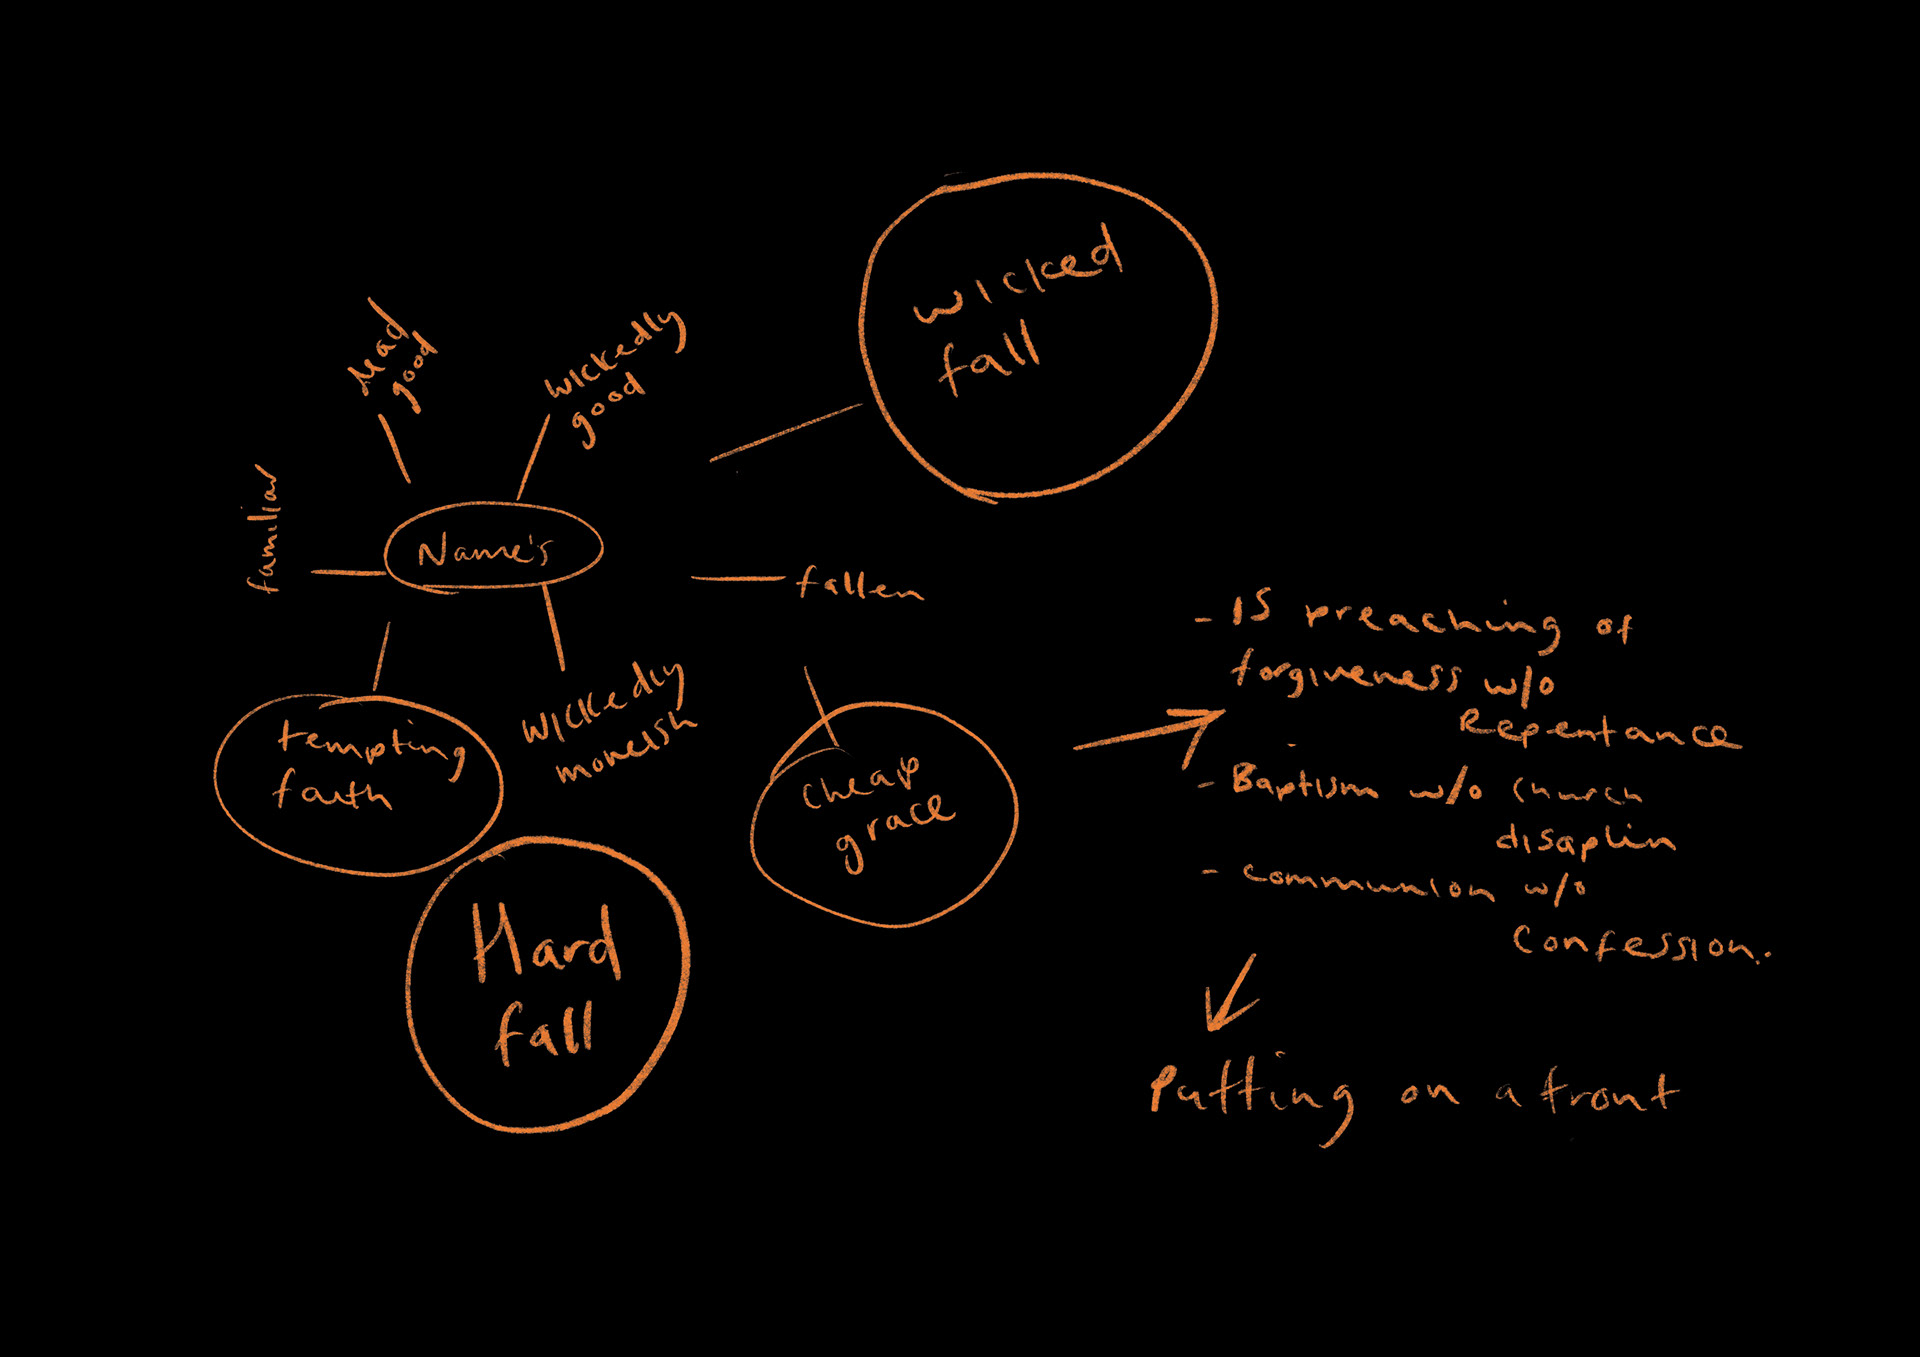 wicked
fall
Mad
good
wickedly
good
familiar
Name's
fallen
tempting
faith
wickedly
moneish
cheap
grace
Hard
fall
- IS preaching of
forgiveness w/o
Repentance
- Baptism w/o church
disaplin
- communion w/o
Confession.
Putting on a front